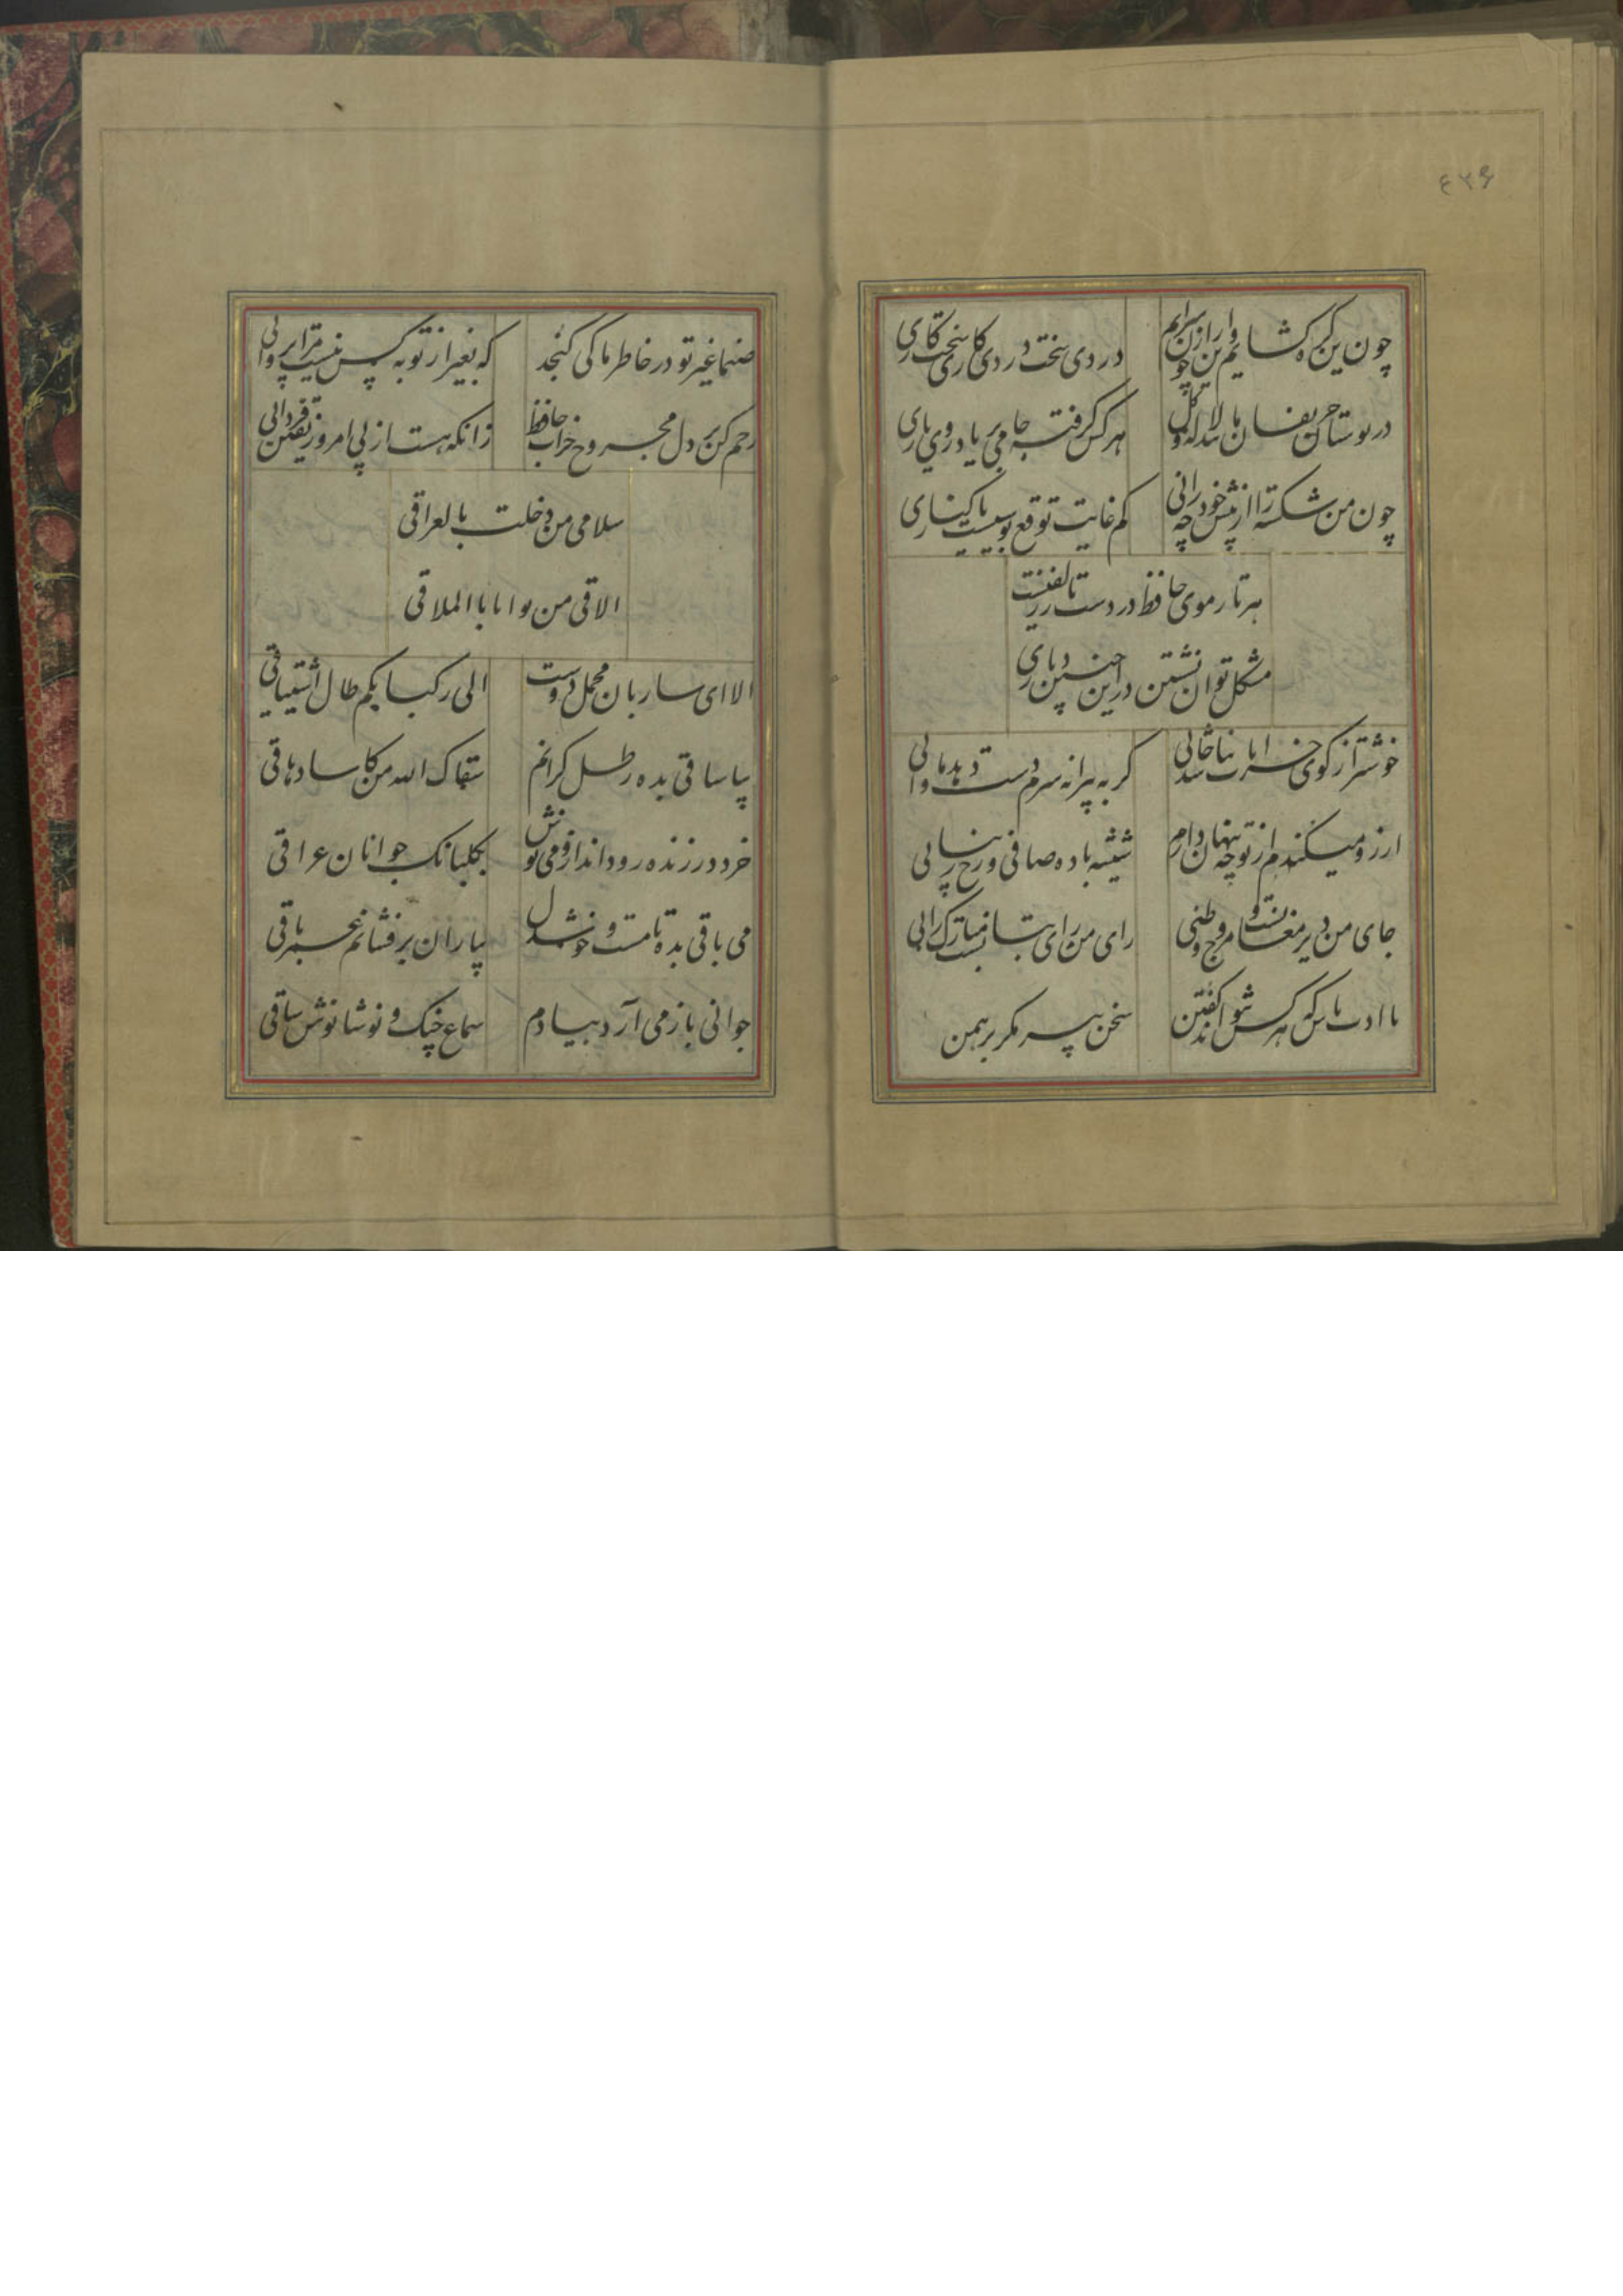 ۶۲۶
چون این گره گشایم وین راز چون سرایم دردی و سخت دردی کاری و سخت کاری
در بوستان حریفان مانند لاله و گل هر کس گرفته جامی بر یاد روی یاری
چون من شکسته را از پیش خود چه رانی کم غایت توقع بوسیست یا کناری
هر تار موی حافظ در دست زلف
مشکل توان نشستن در این چنین دیاری
خوشتر از کوی خرابات نباشد جائی گر به پیرانه سرم دست دهد ماوائی
ارزو میکندم از تو چه پنهان دارم شیشه باده صافی و رخ زیبائی
جای من دیر مغانست و مروح وطنی رای من رای بتانست مبارک رائی
با ادب باش که هر کس نتواند گفتن سخن پیر مگر برهمن
صنما غیر تو در خاطر ما کی گنجد که بغیر از تو به کس نیست مرا پروائی
رحم کن بر دل مجروح خراب حافظ زانکه هست از پی امروز یقین فردائی
سلامی من دخلت بالعراقی
الاقی من نوا بابا الملاقی
الا ای ساربان محمل دوست الی رکبانکم طال اشتیاقی
بیا ساقی بده رطل گرانم سقاک الله من کاسا دهاقی
خرد در زنده رود انداز و می نوش بگلبانک جوانان عراقی
می باقی بده تا مست و خوشدل بیاران بر فشانم عمر باقی
جوانی باز می آرد بیادم سماع چنک و نوشانوش ساقی